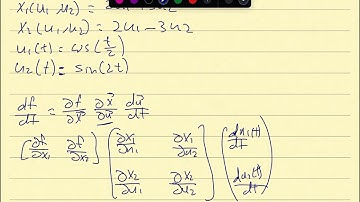 x₁(u₁ u₂) =
x₂(u₁ u₂) = 2u₁ - 3u₂
u₁(t) = cos(t/2)
u₂(t) = sin(2t)
df/dt = ∂f/∂x⃗ ∂x⃗/∂u⃗ du⃗/dt
[∂f/∂x₁ ∂f/∂x₂] (∂x₁/∂u₁ ∂x₁/∂u₂ (du₁(t)/dt
∂x₂/∂u₁ ∂x₂/∂u₂) du₂(t)/dt)